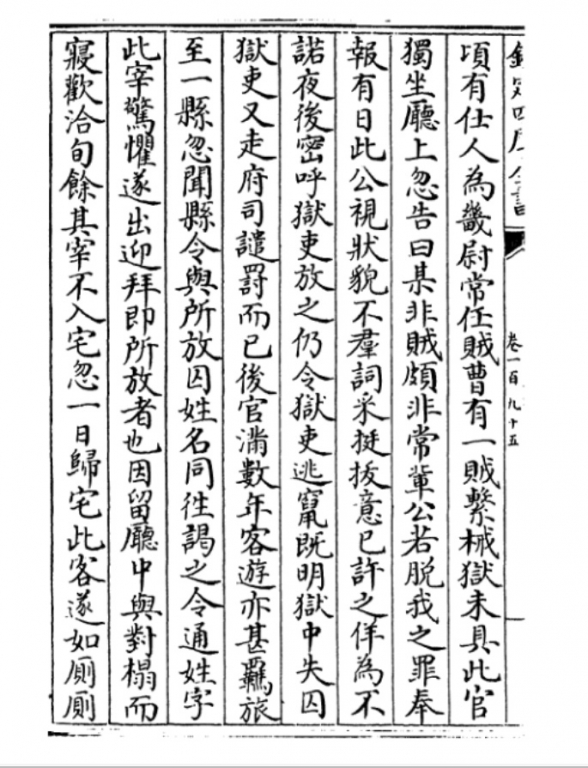 欽定四庫全書
卷一百九十五
頃有仕人為畿尉常任賊曹有一賊繫械獄未具此官
獨坐廳上忽告曰某非賊頗非常輩公若脫我之罪奉
報有日此公視狀貌不羣詞采挺拔意已許之佯為不
諾夜後密呼獄吏放之仍令獄吏逃竄既明獄中失囚
獄吏又走府司譴罰而已後官滿數年客遊亦甚羈旅
至一縣忽聞縣令與所放囚姓名同徃謁之令通姓字
此宰驚懼遂出迎拜即所放者也因留廳中與對榻而
寢歡洽旬餘其宰不入宅忽一日歸宅此客遂如厠厠